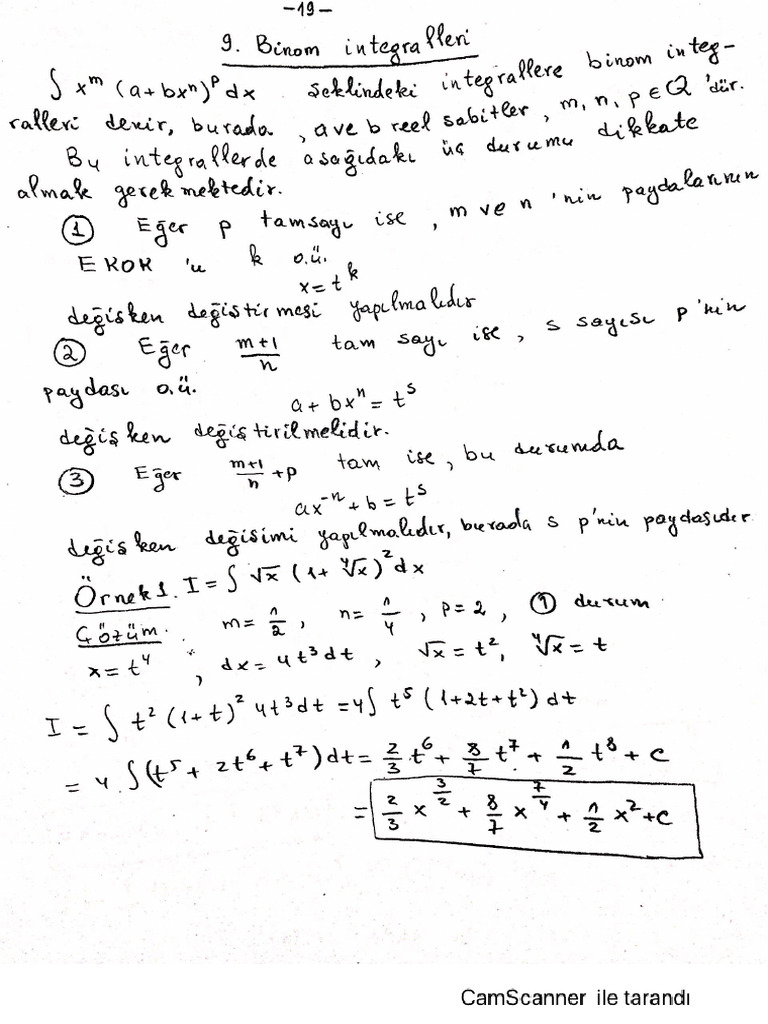 -19-
9. Binom integralleri
∫ x^m (a+bx^n)^p dx şeklindeki integrallere binom integ-
ralleri denir, burada, a ve b reel sabitler, m, n, p ∈ Q 'dür.
Bu integrallerde aşağıdaki üç durumu dikkate
almak gerekmektedir.
① Eğer p tamsayı ise, m ve n 'nin paydalarının
EKOK 'u k o.ü.
x = t^k
değişken değiştirmesi yapılmalıdır
② Eğer (m+1)/n tam sayı ise, s sayısı p'nin
paydası o.ü.
a + bx^n = t^s
değişken değiştirilmelidir.
③ Eğer (m+1)/n + p tam ise, bu durumda
ax^-n + b = t^s
değişken değişimi yapılmalıdır, burada s p'nin paydasıdır
Örnek 1. I = ∫ √x (1+ ⁴√x)² dx
Çözüm. m = 1/2, n = 1/4, p = 2, ① durum
x = t⁴, dx = 4t³dt, √x = t², ⁴√x = t
I = ∫ t² (1+t)² 4t³dt = 4∫ t⁵ (1+2t+t²) dt
= 4 ∫(t⁵ + 2t⁶ + t⁷)dt = 2/3 t⁶ + 8/7 t⁷ + 1/2 t⁸ + c
= 2/3 x^(3/2) + 8/7 x^(7/4) + 1/2 x² + c
CamScanner ile tarandı